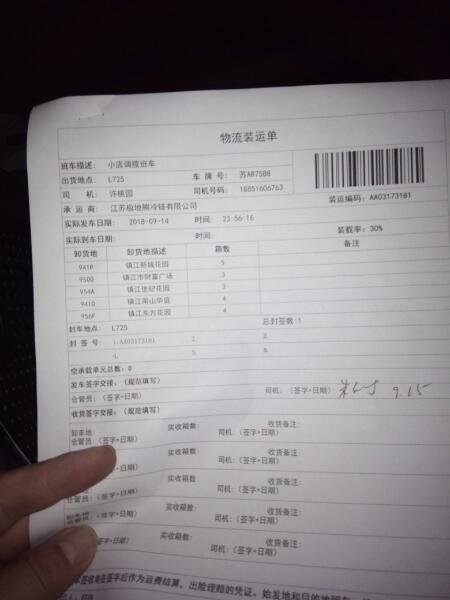 物流装运单
班车描述： 小店调拨班车
出货地点： L725 车 牌 号： 苏AR75B8
司 机： 许桃园 司机号码： 18851606763
承 运 商： 江苏极地熊冷链有限公司 装运编码：AA03173181
实际发车日期： 2018-09-14 时间： 23:56:16
实际到车日期： 时间： 装载率：30%
卸货地 卸货地描述 箱数 备注
941P 镇江新城花园 5
950D 镇江市财富广场 3
954A 镇江世纪花园 3
941D 镇江南山华庭 4
956F 镇江东方花园 4
封车地点： L725 总封签数：1
封 签 号： 1.AA03173181 2. 3.
4. 5. 6.
空承载单元总数：0
发车签字交接：（规范填写）
仓管员：（签字+日期） 司机：（签字+日期） 9.15
收货签字交接：（规范填写）
卸车地： 实收箱数： 收货备注：
仓管员：（签字+日期） 司机：（签字+日期）
实收箱数： 收货备注：
（签字+日期） 司机：（签字+日期）
实收箱数： 收货备注：
仓管员：（签字+日期） 司机：（签字+日期）
卸车地 实收箱数： 收货备注：
仓管员：（签字+日期） 司机：（签字+日期）
实收箱数： 收货备注：
（签字+日期） 司机：（签字+日期）
签收单在签字后作为运费结算、出险理赔的凭证。始发地和目的地